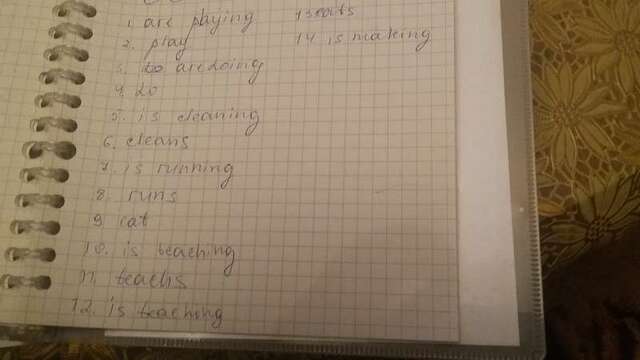 1. are playing
2. play
3. do are doing
4. do
5. is cleaning
6. cleans
7. is running
8. runs
9. eat
10. is teaching
11. teachs
12. is teaching
13 eats
14 is making